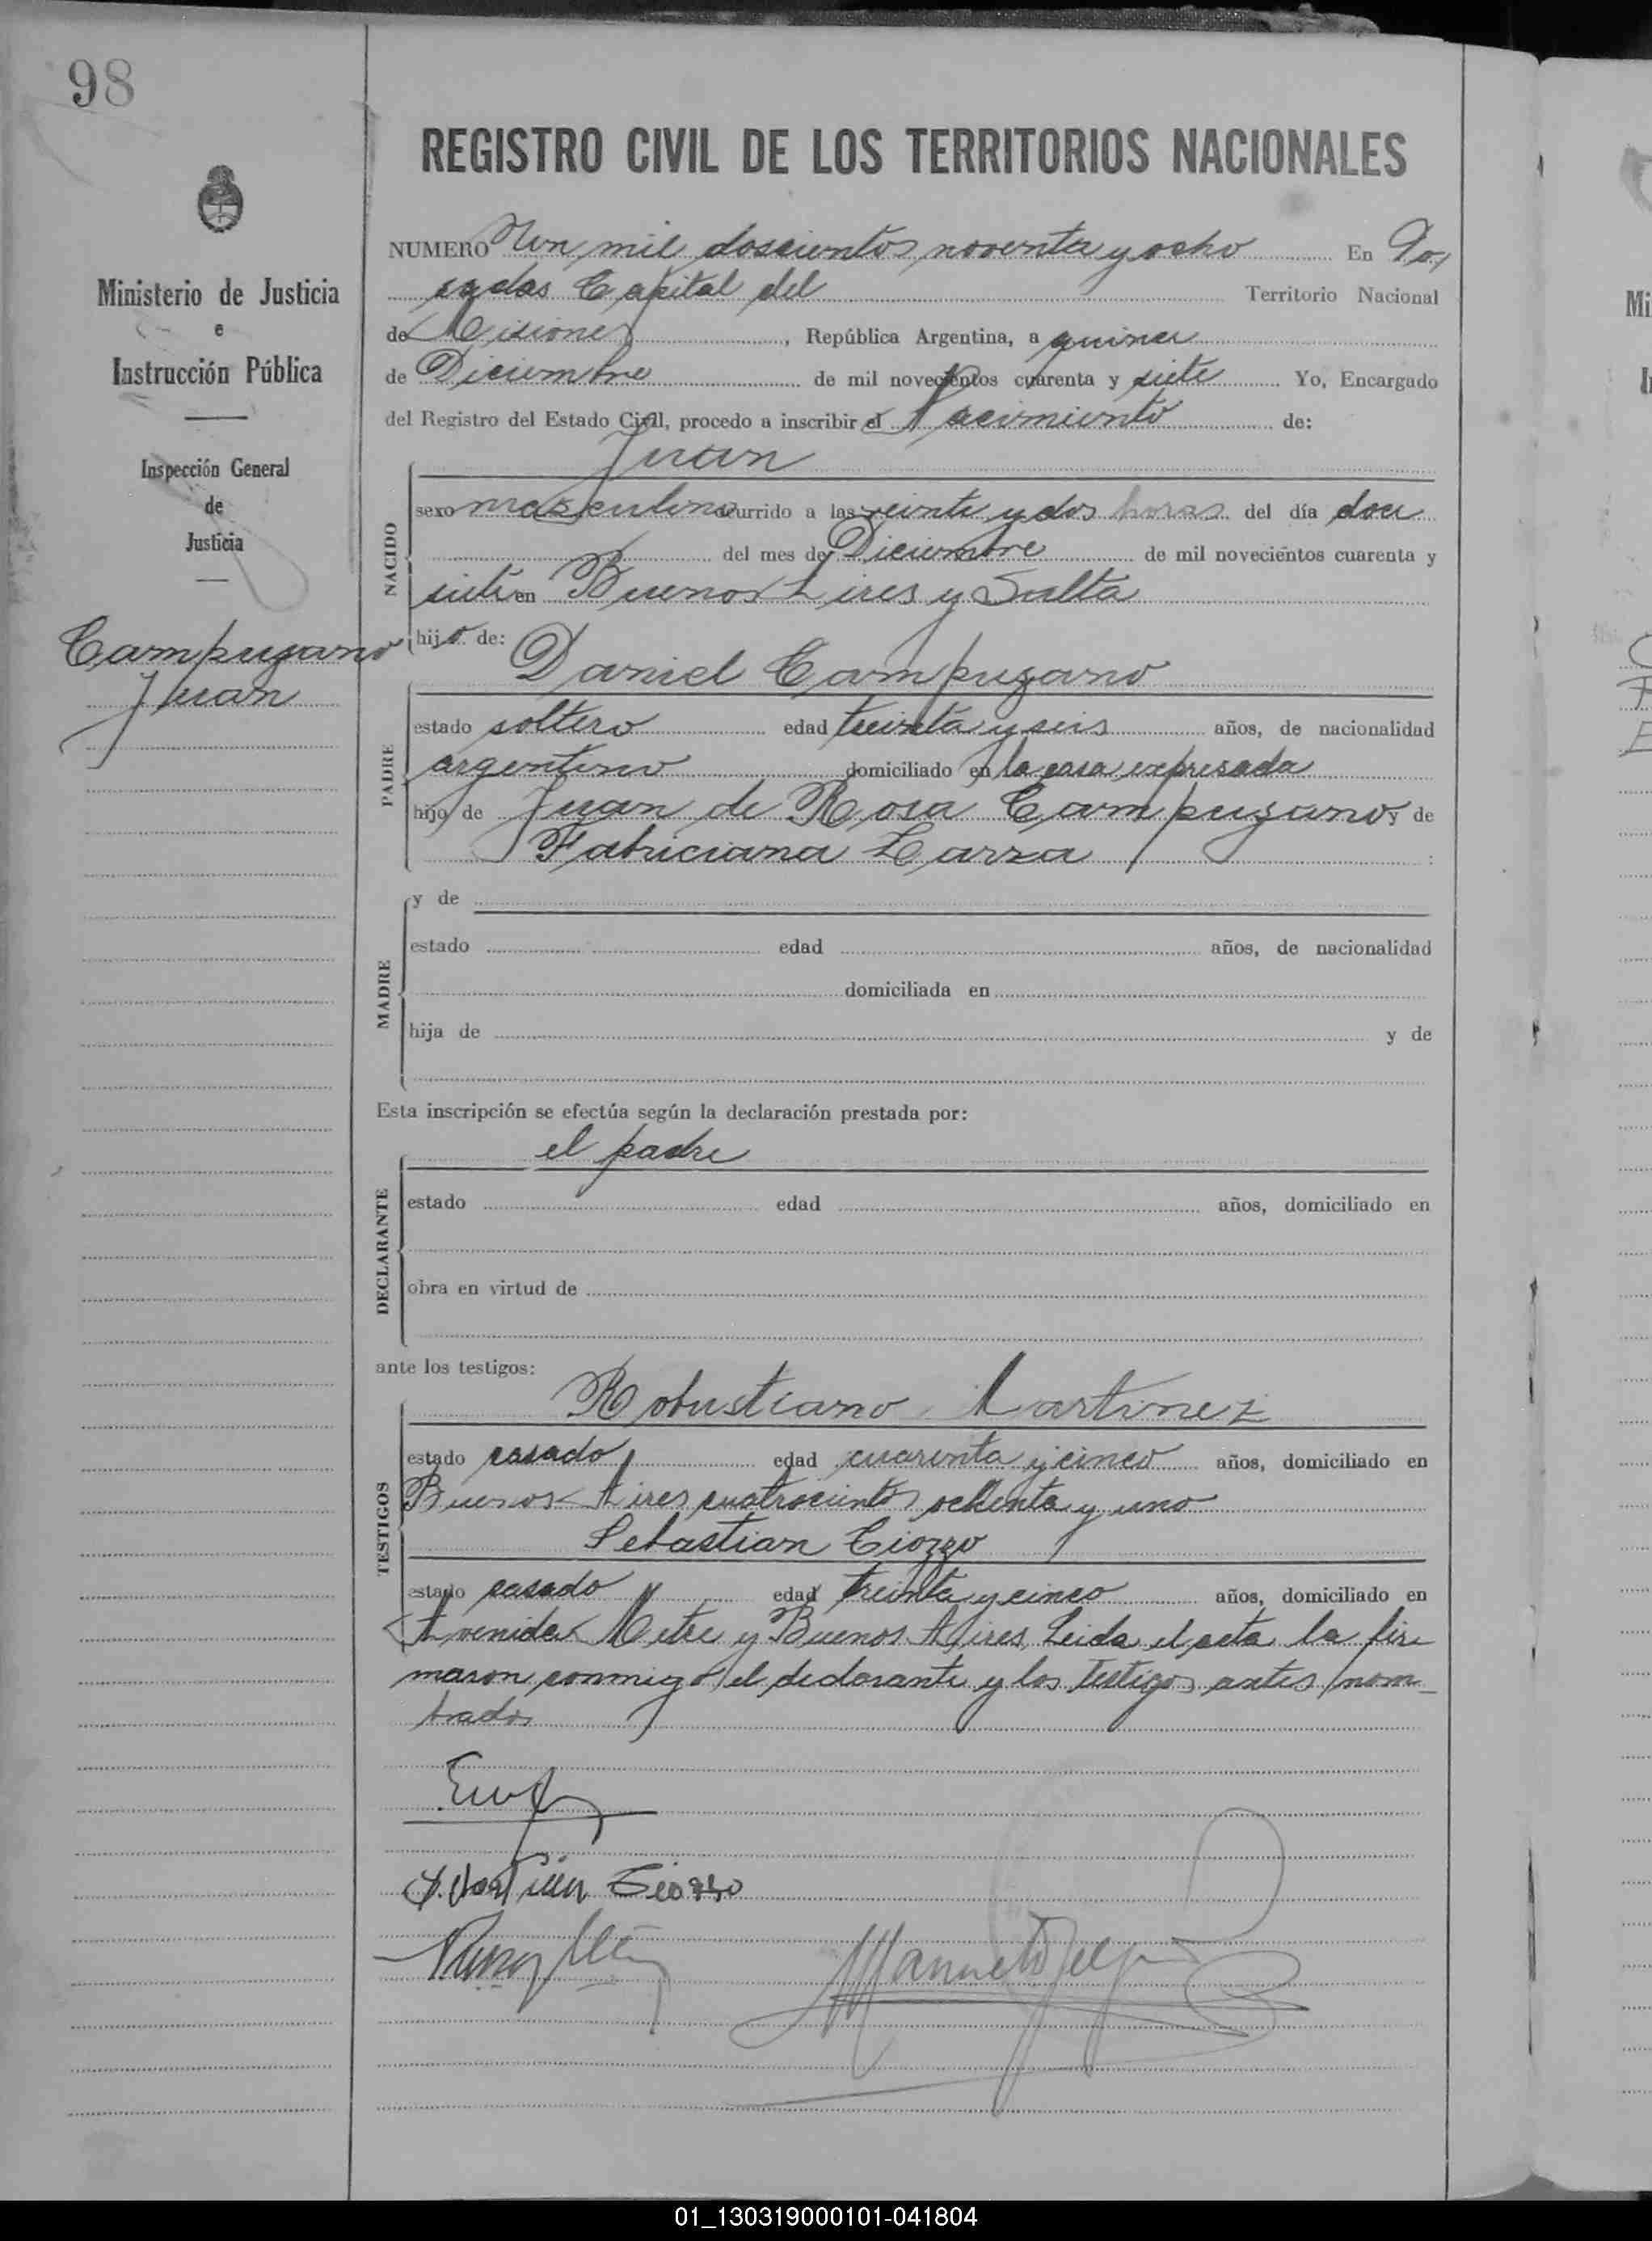 98
REGISTRO CIVIL DE LOS TERRITORIOS NACIONALES
Ministerio de Justicia
e
Instrucción Pública
Inspección General
de
Justicia
Campuzano
Juan
NUMERO Un mil doscientos noventa y ocho En Po
sadas Capital del Territorio Nacional
de Misiones, República Argentina, a quince
de Diciembre de mil novecientos cuarenta y siete Yo, Encargado
del Registro del Estado Civil, procedo a inscribir el Nacimiento de:
Juan
NACIDO
sexo masculino ocurrido a las veinte y dos horas del día doce
del mes de Diciembre de mil novecientos cuarenta y
siete en Buenos Aires y Salta
hijo de:
Daniel Campuzano
PADRE
estado soltero edad treinta y seis años, de nacionalidad
argentino domiciliado en la casa expresada
hijo de Juan de Rosa Campuzano y de
Fabriciana Larza :
MADRE
y de
estado edad años, de nacionalidad
domiciliada en
hija de y de
Esta inscripción se efectúa según la declaración prestada por:
el padre
DECLARANTE
estado edad años, domiciliado en
obra en virtud de
ante los testigos:
Robustiano Martinez
TESTIGOS
estado casado edad cuarenta y cinco años, domiciliado en
Buenos Aires cuatrocientos ochenta y uno
Sebastian Ciozzo
estado casado edad treinta y cinco años, domiciliado en
Avenida Mitre y Buenos Aires, Leida el acta la fir
maron conmigo el declarante y los testigos antes nom_
brados
Ciozzo
Manuel
Mi
01_130319000101-041804